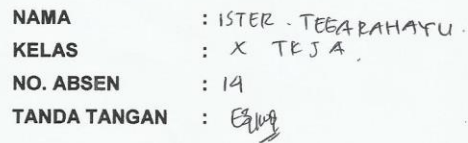 NAMA : ISTER . TEGARAHAYU .
KELAS : X TKJ A .
NO. ABSEN : 19
TANDA TANGAN :